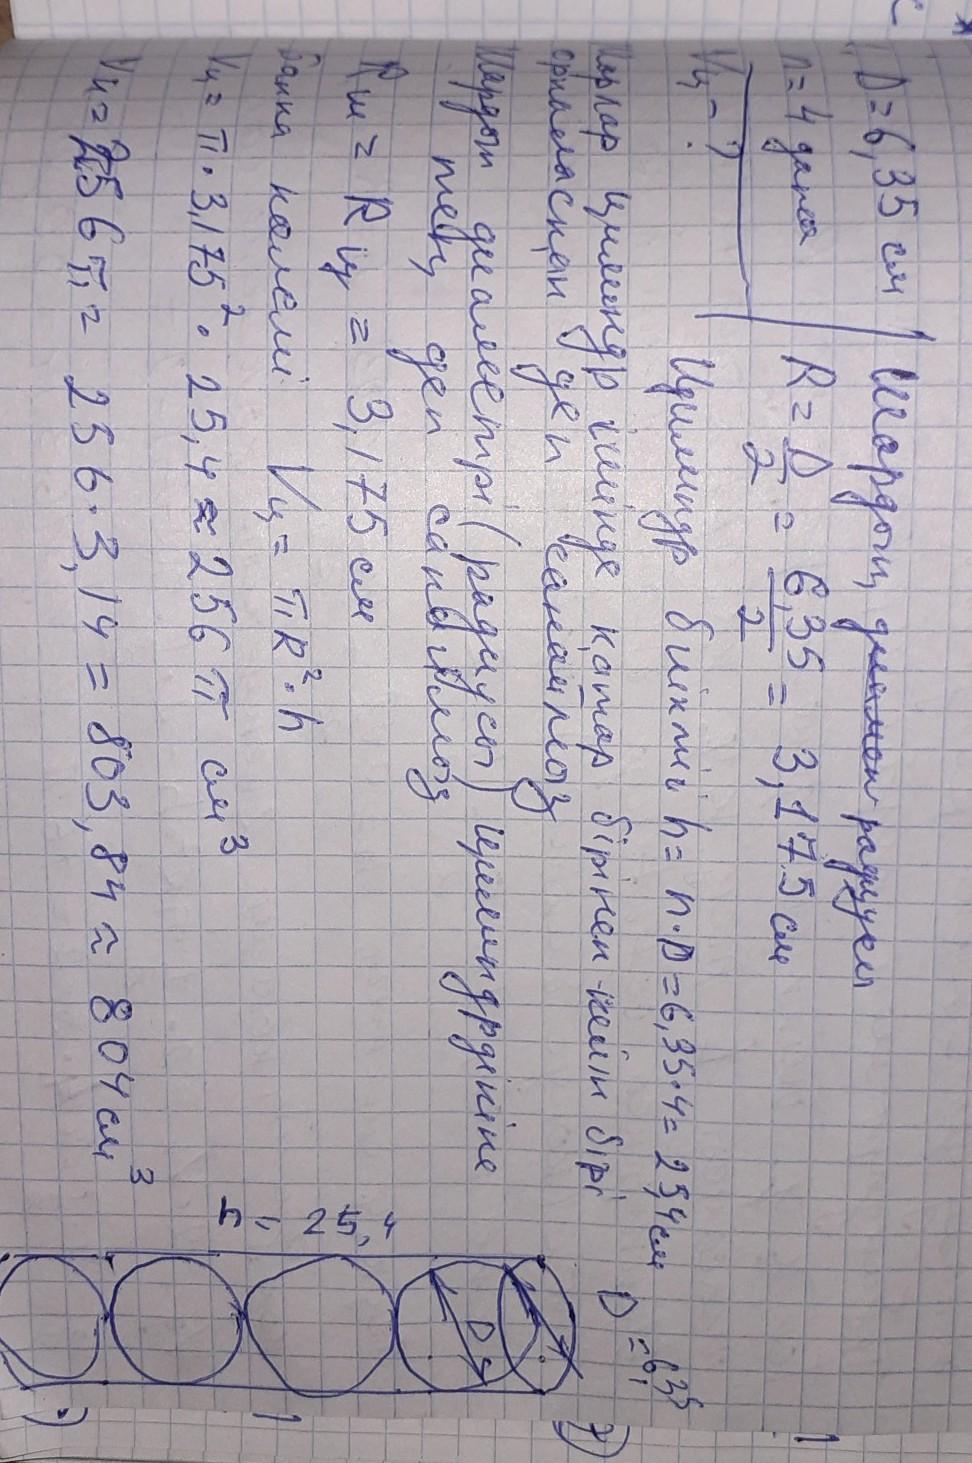 D = 6,35 см
n = 4 дана
Vц - ?
Шардың диамет радиусы
R = D/2 = 6,35/2 = 3,175 см
Цилиндр биіктігі h = n·D = 6,35·4 = 25,4 см
Шарлар цилиндр ішінде қатар бірінен-кейін бірі
орналасқан деп санаймыз
Шардың диаметрі (радиусы) цилиндрдікіне
тең деп санаймыз
Rш = Rц = 3,175 см
Банка көлемі Vц = πR²·h
Vц = π·3,175²·25,4 ≈ 256π см³
Vц = 256π = 256·3,14 = 803,84 ≈ 804 см³
D = 6,35
h = 25,4
D